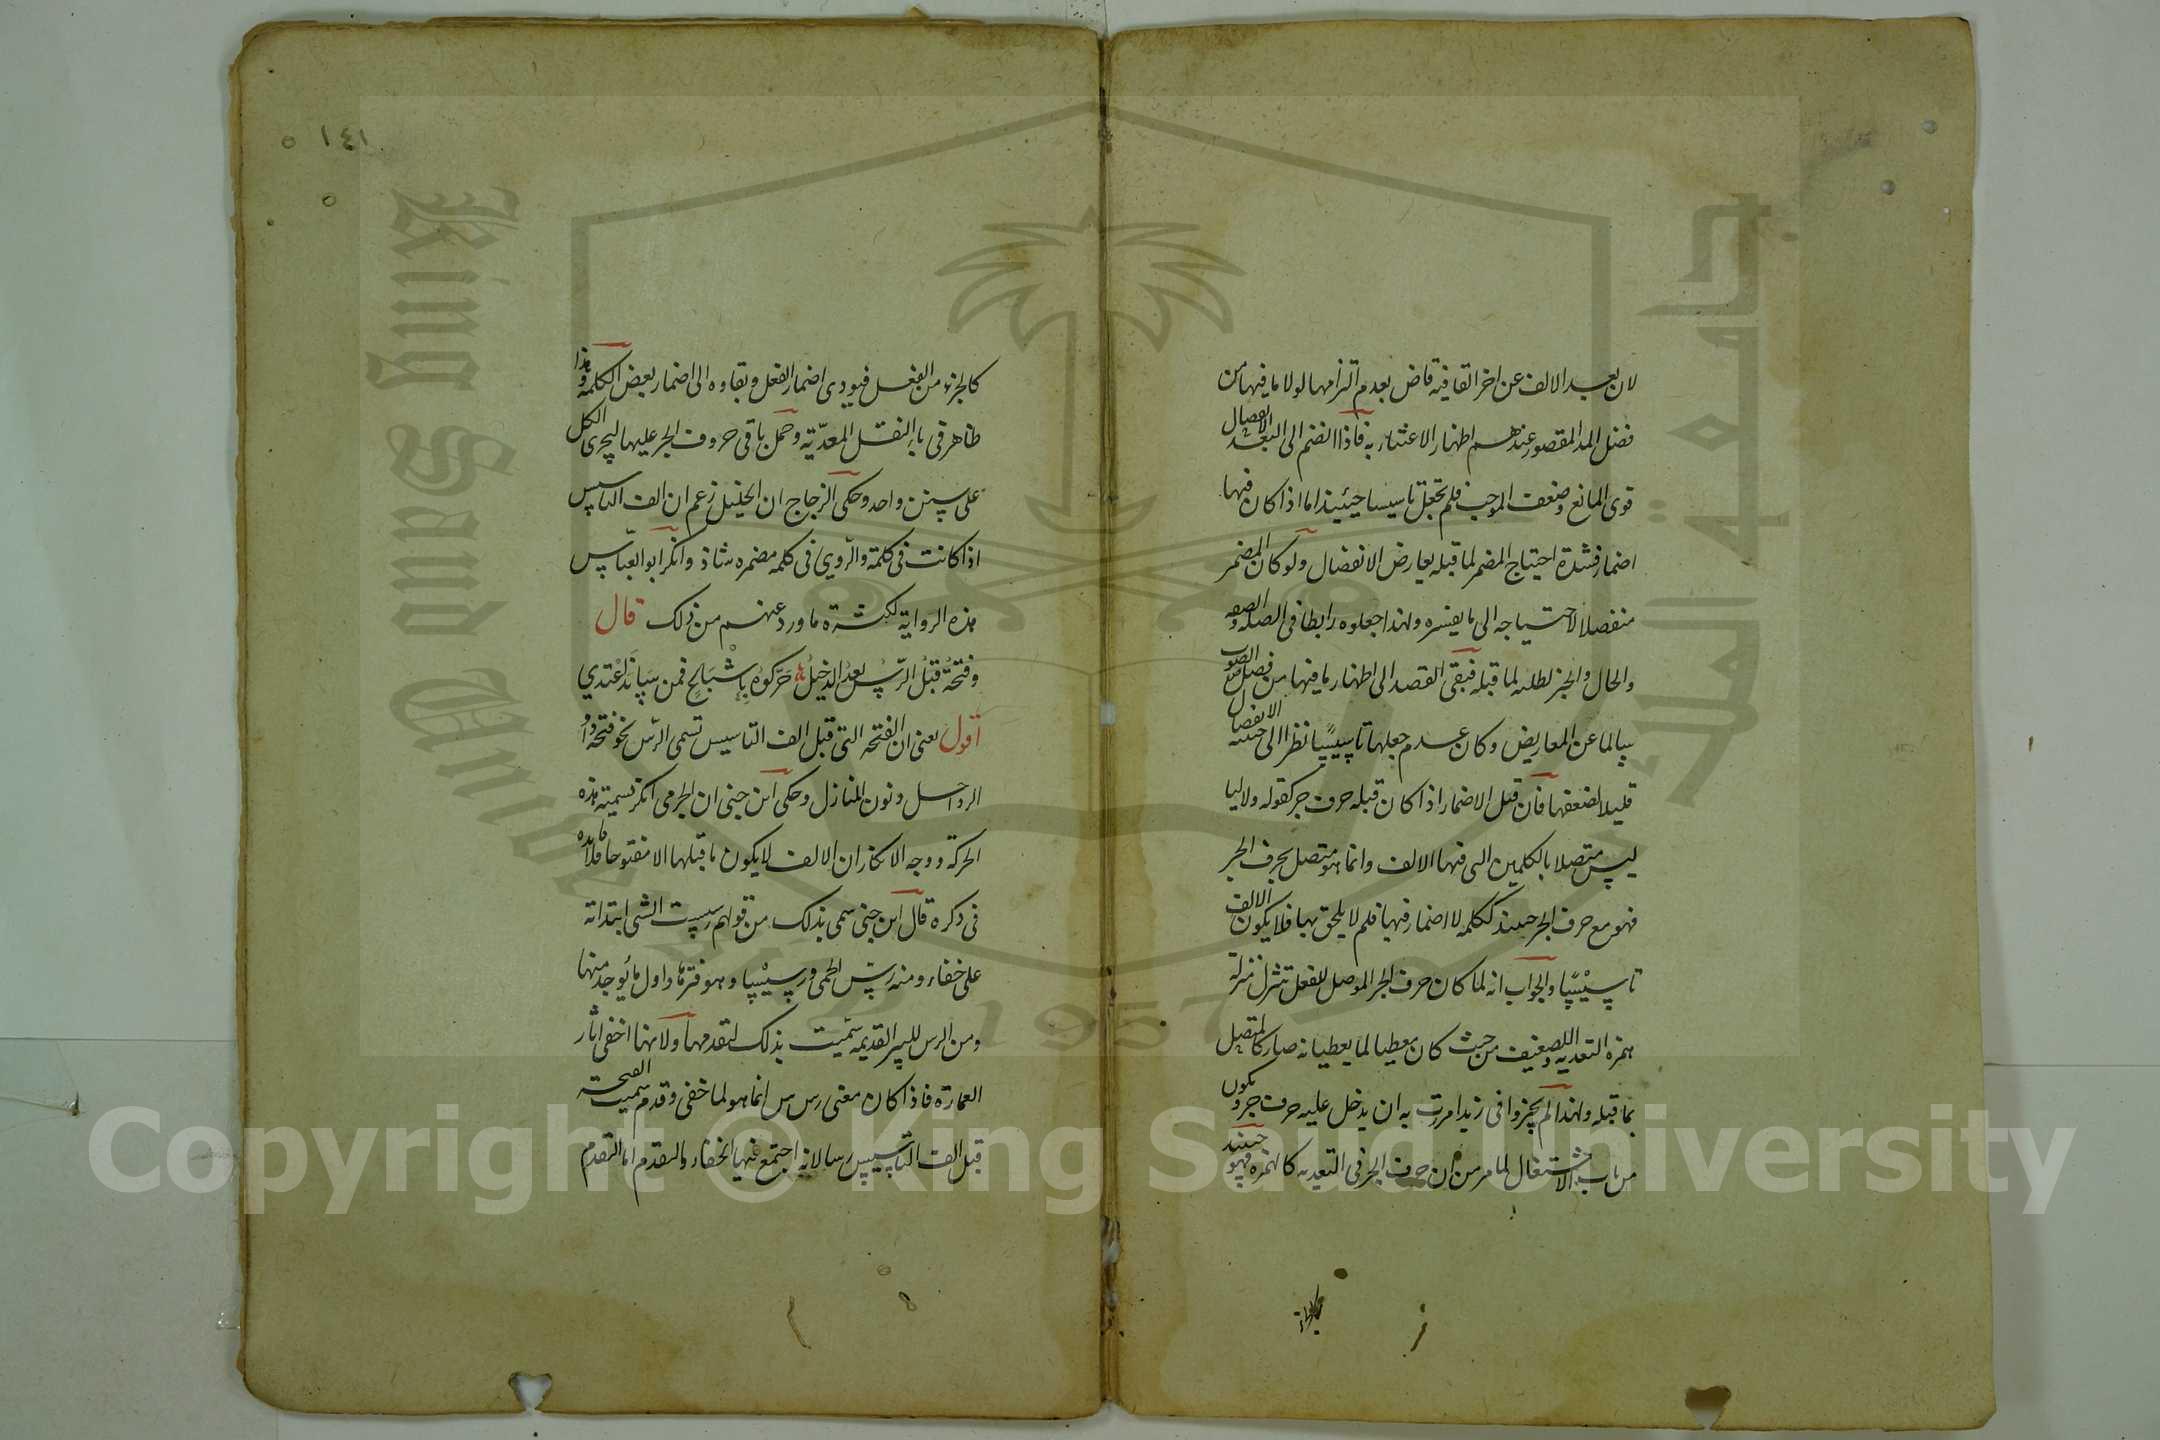 لان بعد الالف عن اخر القافية قاض بعدم التزامها لولا ما فيها من
فضل المد المقصور عندهم اظهار الاعتناء به فاذا انضم الى البعد الانفصال
قوى المانع وضعف الموجب فلم تجعل تاسيسا حينئذ اما اذا كان فيها
اضمار فشدة احتياج المضمر لما قبله يعارض الانفصال ولو كان المضمر
منفصلا لاحتياجه الى ما يفسره ولهذا جعلوه رابطا فى الصله والصفه
والحال والخبر لطلبه لما قبله فبقى القصد الى اظهار ما فيها من فضل الصوت
سالما عن المعارض وكان عدم جعلها تاسيسا نظرا الى الانفصال
قليلا لضعفها فان قيل الاضمار اذا كان قبله حرف جر كقوله ولا ليا
ليس متصلا بالكلمه التى فيها الالف وانما هو متصل بحرف الجر
فهو مع حرف الجر حينئذ ككلمه لا اضمار فيها فلم لا يلحق بها فلا يكون الالف
تاسيسا والجواب انه لما كان حرف الجر الموصل للفعل تنزل منزلة
همزة التعديه والتضعيف من حيث كان معطيا لما يعطيانه صار كالمتصل
بما قبله ولهذا لم يجيزوا فى زيدا مررت به ان يدخل عليه حرف جر ويكون
من باب الاشتغال لما مر من ان حرف الجر فى التعديه كالهمزه فهو حينئذ
١٤١
كالجزء من الفعل فيودى اضمار الفعل وبقاوه الى اضمار بعض الكلمه وهذا
ظاهر فى باء النقل المعدّية وحمل باقى حروف الجر عليها ليجرى الكل
على سنن واحد وحكى الزجاج ان الخليل زعم ان الف التاسيس
اذا كانت فى كلمة والرّوي فى كلمه مضمره شاذ وانكر ابو العبّاس
هذه الرواية لكثرة ما ورد عنهم من ذلك قال
وفتحة قبل الرّس بعد الدخيل حرّكوه باشباع فمن ساند اعتدي
اقول يعنى ان الفتحه التى قبل الف التاسيس تسمى الرسّ نحو فتحة واو
الرواحل ونون المنازل وحكى ابن جنى ان الجرمى انكر تسمية هذه
الحركة ووجه الانكار ان الالف لا يكون ما قبلها الا مفتوحا فلا فايده
فى ذكره قال ابن جنى سمى بذلك من قولهم رسست الشى ابتداته
على خفاء ومنه رسّ الحمى ورسيسها وهو فترها واول ما يوجد منها
ومن الرس للبير القديمه سمّيت بذلك لتقدمها ولانها اخفى اثار
العمارة فاذا كان معنى رس س انما هو لما خفى وقدم سميت الفتحة
قبل الف التاسيس رسا لانه اجتمع فيها الخفاء والتقدم اما التقدم
جامعة الملك سعود
King Saud University
1957
Copyright © King Saud University